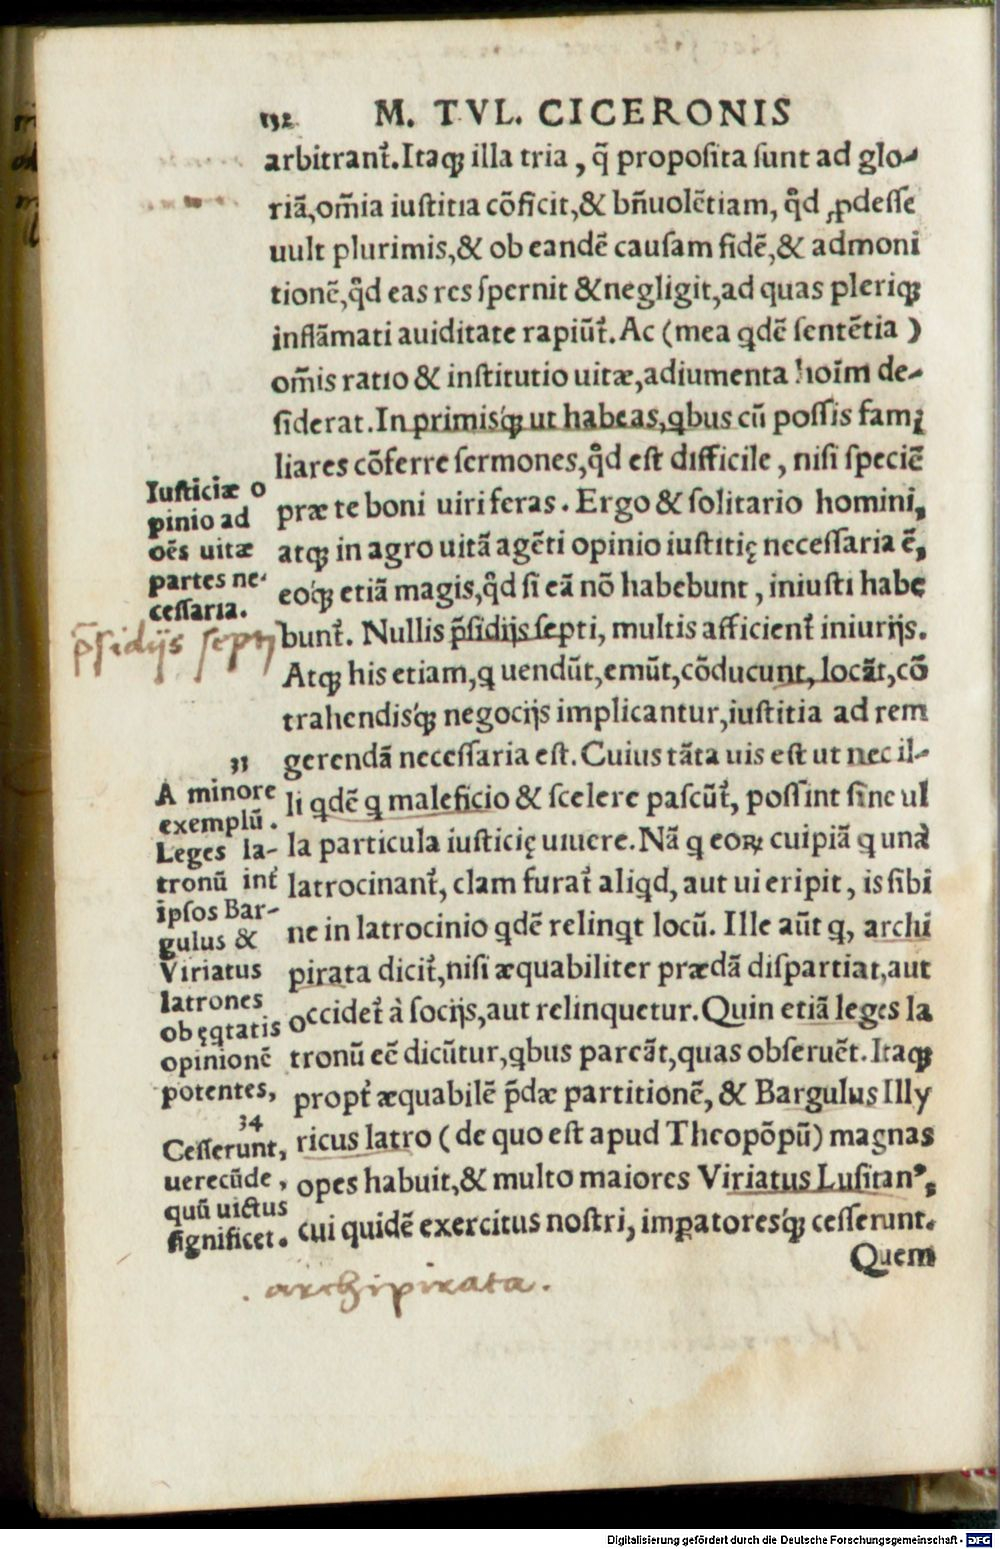 132 M. TVL. CICERONIS
arbitrant᷑. Itaqꝫ illa tria, q̃ proposita sunt ad glo-
riã, om̃ia iustitia cõficit, & bñuolẽtiam, qᷓd ꝓdesse
uult plurimis, & ob eandẽ causam fidẽ, & admoni
tionẽ, qᷓd eas res spernit & negligit, ad quas pleriqꝫ
inflãmati auiditate rapiũt᷑. Ac (mea qdẽ sentẽtia)
om̃is ratio & institutio uitæ, adiumenta hoĩm de-
siderat. In primisq́ꝫ ut habeas, qbus cũ possis fami
liares cõferre sermones, qᷓd est difficile, nisi speciẽ
præ te boni uiri feras. Ergo & solitario homini,
atqꝫ in agro uitã agẽti opinio iustitię necessaria ẽ,
eoq́ꝫ etiã magis, qᷓd si eã nõ habebunt, iniusti habe
bunt᷑. Nullis p̃sidijs septi, multis afficient᷑ iniurijs.
Atqꝫ his etiam, q uendũt, emũt, cõducunt, locãt, cõ
trahendisq́ꝫ negocijs implicantur, iustitia ad rem
gerendã necessaria est. Cuius tãta uis est ut nec il-
li qdẽ q maleficio & scelere pascũt᷑, possint sine ul
la particula iusticię uiuere. Nã q eoꝝ cuipiã q unà
latrocinant᷑, clam furat᷑ aliqd, aut ui eripit, is sibi
ne in latrocinio qdẽ relinqt locũ. Ille aũt q, archi
pirata dicit᷑, nisi æquabiliter prædã dispartiat, aut
occidet᷑ à socijs, aut relinquetur. Quin etiã leges la
tronũ eẽ dicũtur, qbus parcãt, quas obseruẽt. Itaqꝫ
propt᷑ æquabilẽ p̃dæ partitionẽ, & Bargulus Illy
ricus latro (de quo est apud Theopõpũ) magnas
opes habuit, & multo maiores Viriatus Lusitanꝰ,
cui quidẽ exercitus nostri, impatoresq́ꝫ cesserunt.
Quem
Iusticiæ o
pinio ad
oẽs uitæ
partes ne-
cessaria.
p̃sidijs septi
33
A minore
exemplũ.
Leges la-
tronũ int᷑
ipsos Bar-
gulus &
Viriatus
latrones
ob ęqtatis
opinionẽ
potentes,
34
Cesserunt,
uerecũde,
quũ uictus
significet.
. archipirata.
Digitalisierung gefördert durch die Deutsche Forschungsgemeinschaft - DFG